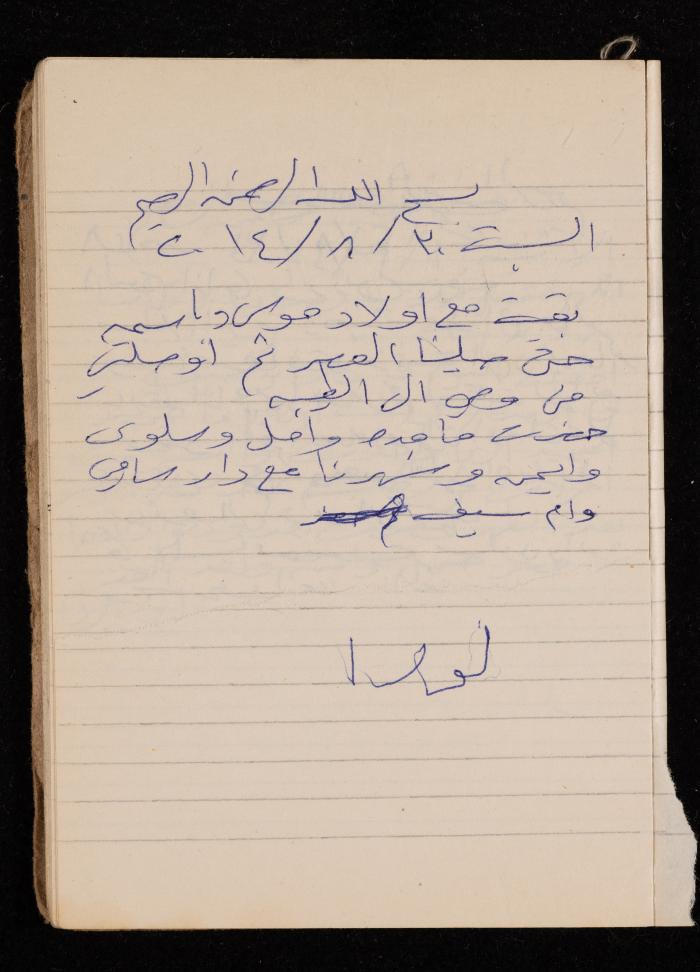 بسم الله الرحمن الرحيم
السبت ٣٠/ ٨/ ٢٠١٤
بقيت مع اولاد موسى وباسمه
حتى صلينا العصر ثم اوصلتني
من وضو الى الطيبه
حضرت ماجده وامل وسلوى
وايمن وسهرنا مع دار سامي
وام سيف